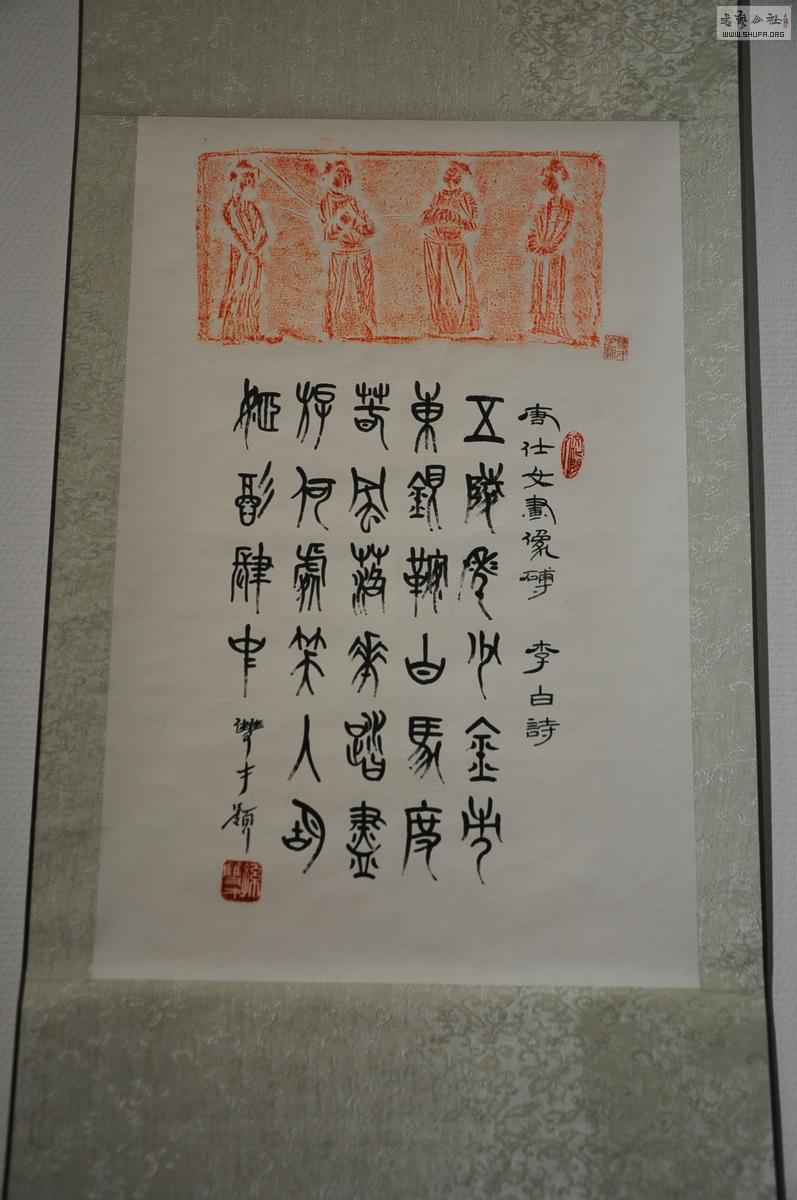 唐仕女畫像磚 李白詩
五陵年少金市
東銀鞍白馬度
春風落花踏盡
游何處笑入胡
姬酒肆中
雙才題
WWW.SHUFA.ORG